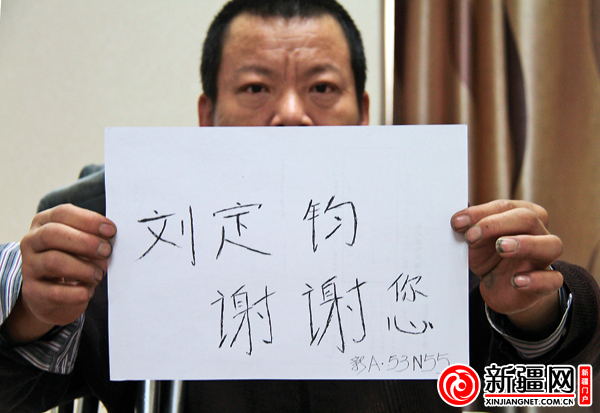 刘定钧
谢谢您
新A·53N55
新疆网
XINJIANGNET.COM.CN
新疆门户